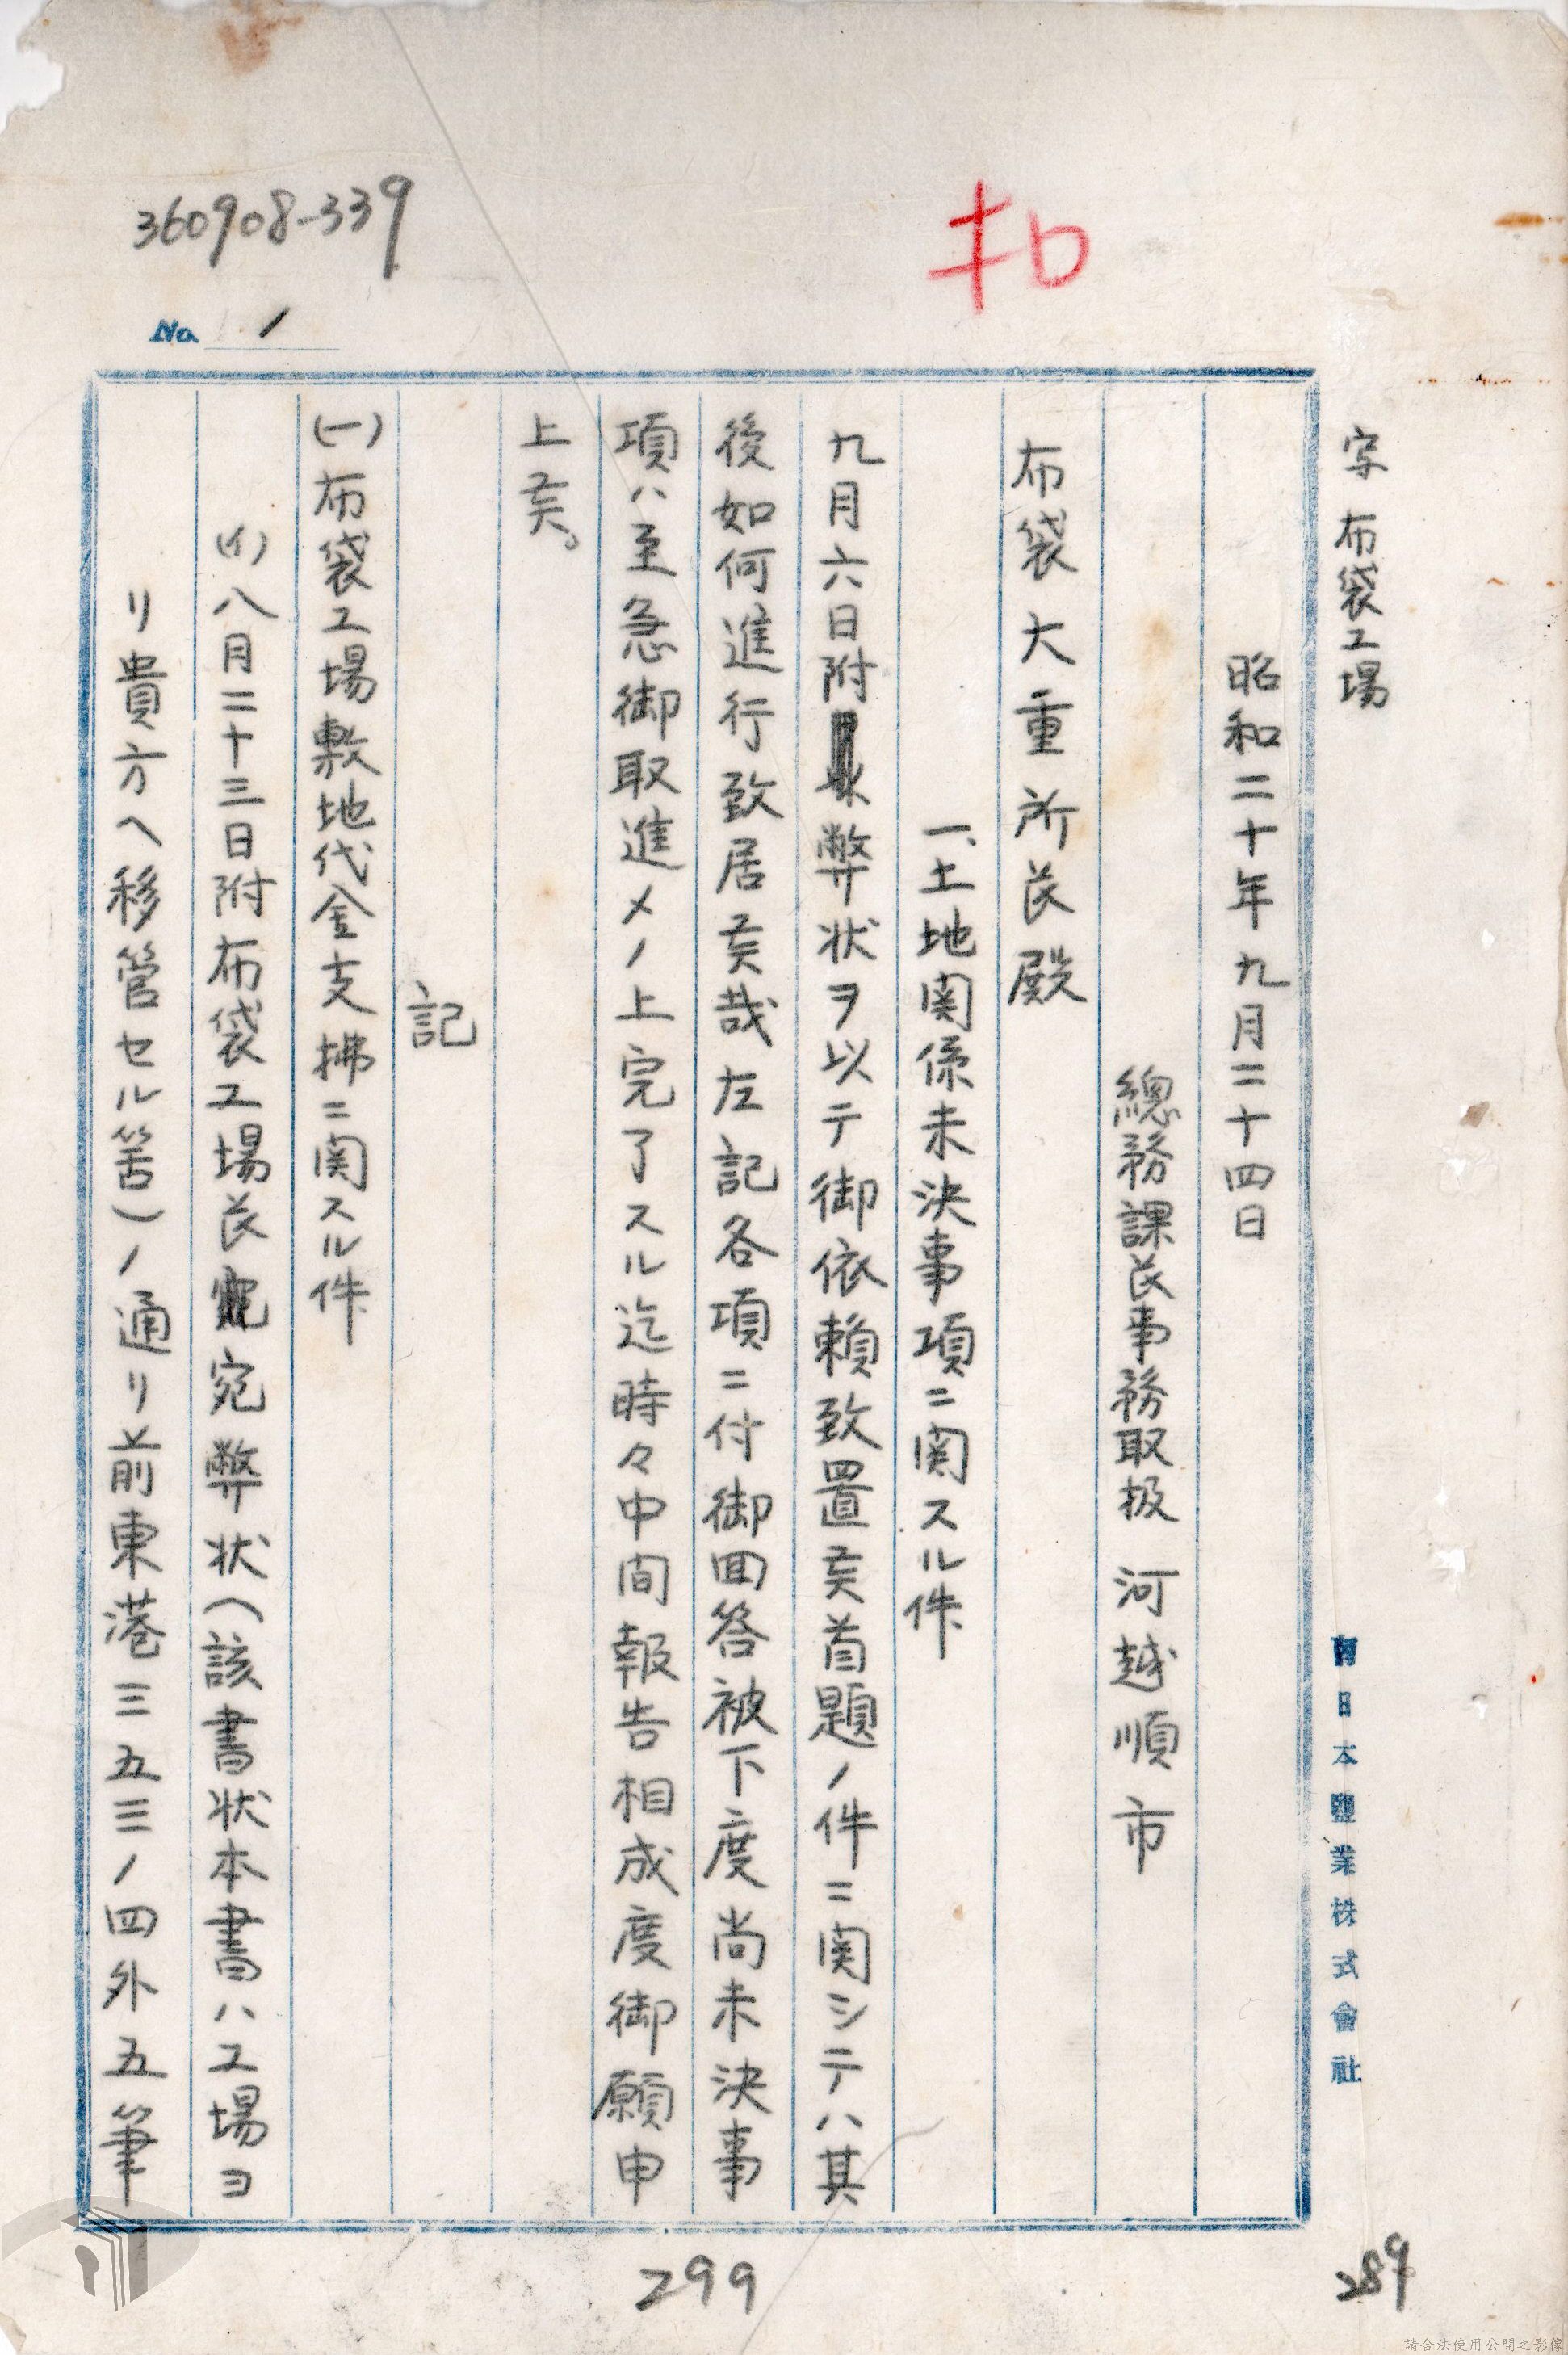 360908-339
キロ
No. 1
写 布袋工場
南日本鹽業株式會社
昭和二十年九月二十四日
總務課長事務取扱 河越順市
布袋大重所長殿
一、土地関係未決事項ニ関スル件
九月六日附弊状ヲ以テ御依頼致置候首題ノ件ニ関シテハ其
後如何進行致居候哉左記各項ニ付御回答被下度尚未決事
項ハ至急御取進メノ上完了スル迄時々中間報告相成度御願申
上候。
記
(一)布袋工場敷地代金支拂ニ関スル件
(イ)八月二十三日附布袋工場長宛弊状(該書状本書ハ工場ヨ
リ貴方ヘ移管セル筈)ノ通リ前東港三五三ノ四外五筆
299
289
請合法使用公開之影像